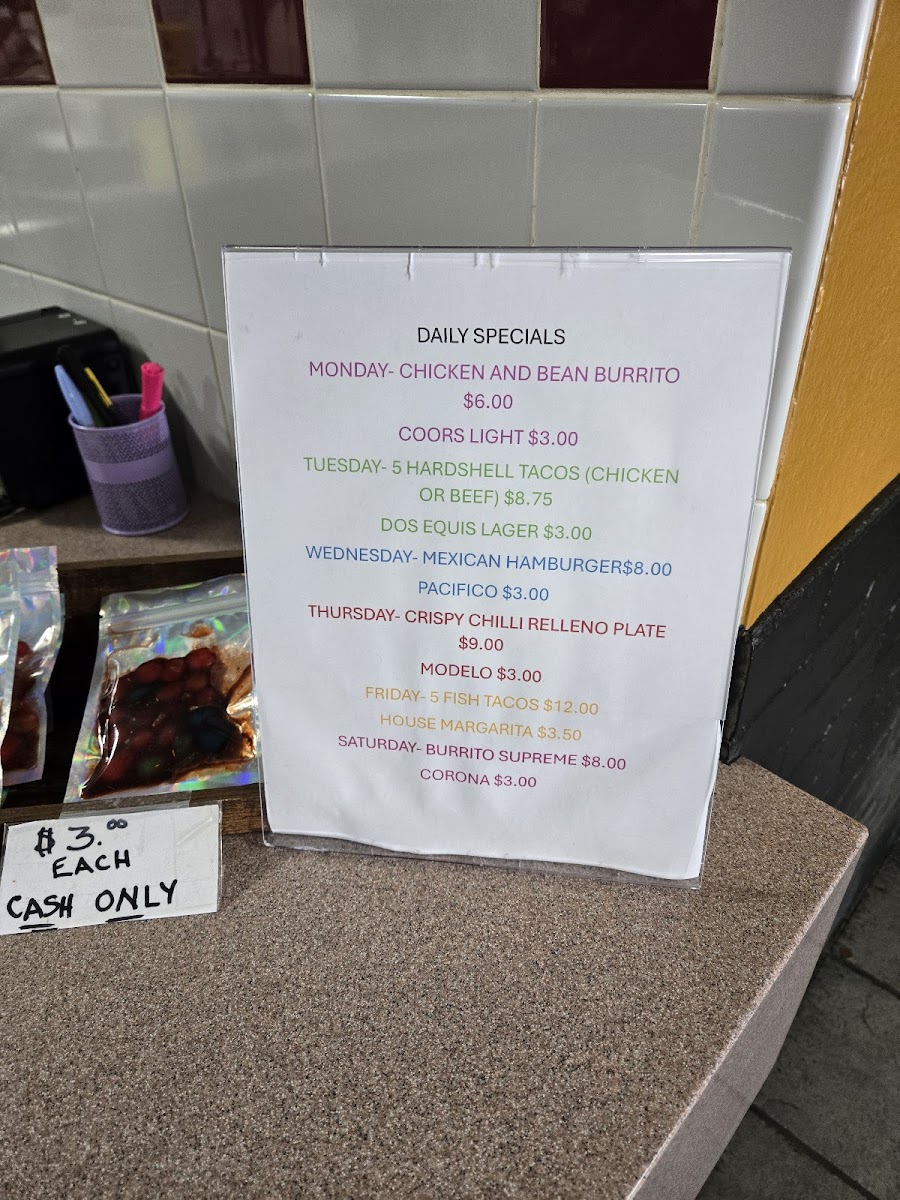 DAILY SPECIALS
MONDAY- CHICKEN AND BEAN BURRITO
$6.00
COORS LIGHT $3.00
TUESDAY- 5 HARDSHELL TACOS (CHICKEN
OR BEEF) $8.75
DOS EQUIS LAGER $3.00
WEDNESDAY- MEXICAN HAMBURGER$8.00
PACIFICO $3.00
THURSDAY- CRISPY CHILLI RELLENO PLATE
$9.00
MODELO $3.00
FRIDAY- 5 FISH TACOS $12.00
HOUSE MARGARITA $3.50
SATURDAY- BURRITO SUPREME $8.00
CORONA $3.00
$3.00
EACH
CASH ONLY